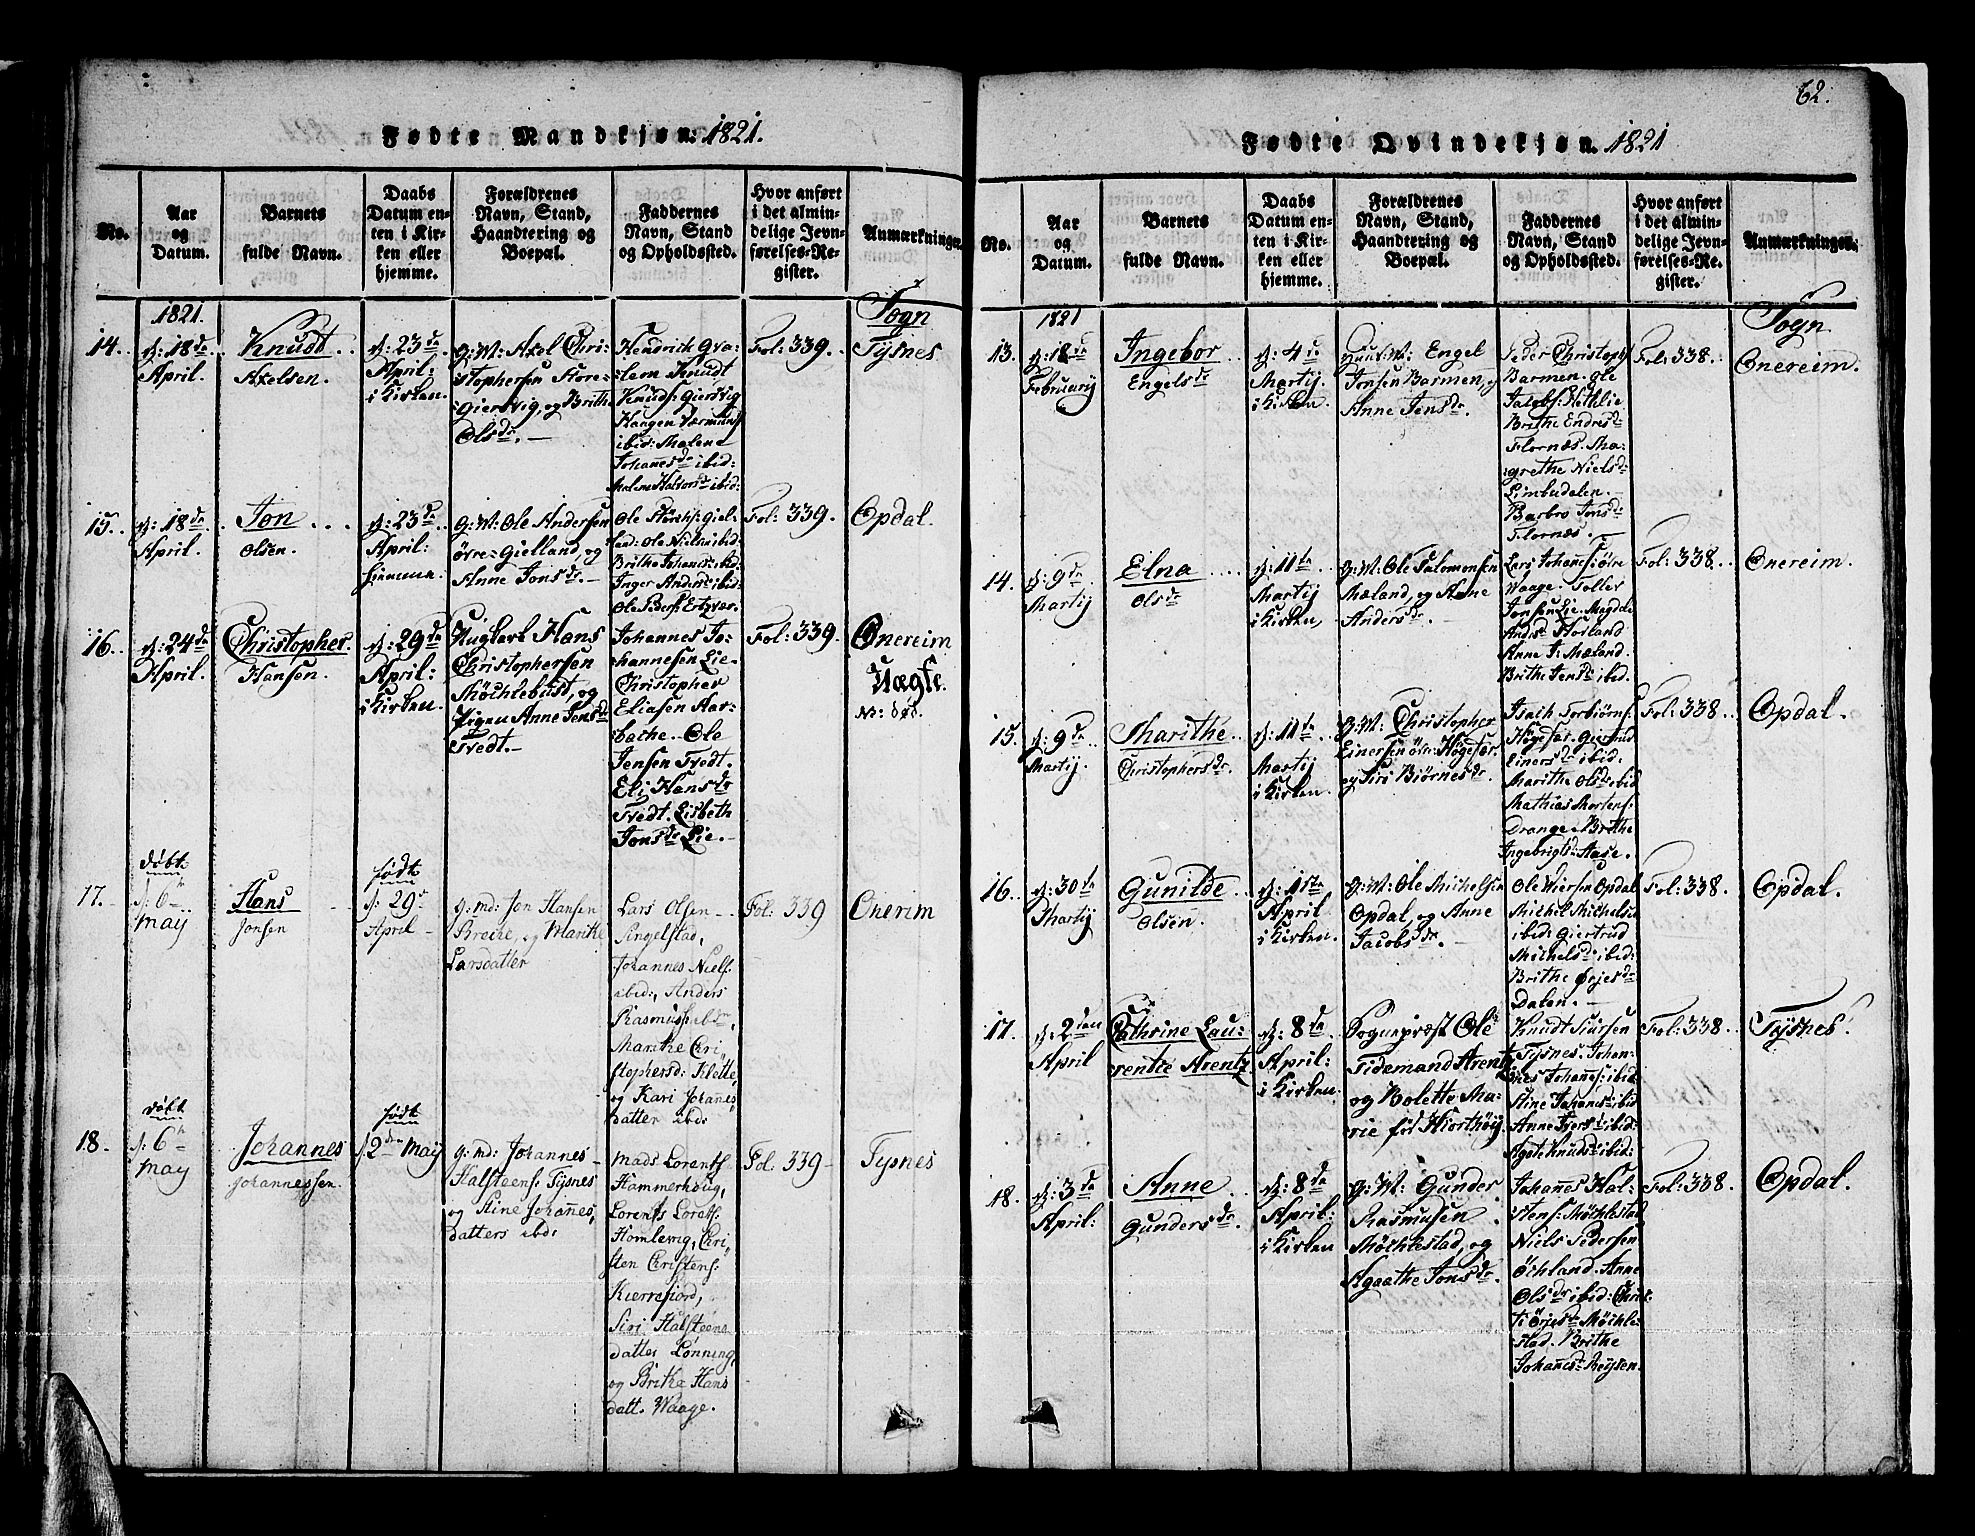 Fødte Mandkjøn. 1821.
No.
Aar
og
Datum.
Barnets
fulde Navn.
Daabs
Datum en-
ten i Kir-
ken eller
hjemme.
Forældrenes
Navn, Stand,
Haandtering og
Boepæl.
Faddernes
Navn, Stand
og Opholdssted.
Hvor anført
i det almin-
delige Jevn-
førelses-Re-
gister.
Anmærkninger.
1821.
14.
d: 18de
April.
Knudt
Axelsen.
d: 23de
April:
i Kirken.
g: M: Axel Chri-
stophersen Store-
Giersvig, og Brithe
Olsdr.
Hendrik
Knudt
Knuds: Giersvig
Haagen
ibid: Malene
Johannesdr ibid:
Malene ibid:
Fol: 339.
Sogn
Tysnes
15.
d: 18de
April.
Jon
Olsen.
d: 23de
April:
hiemme.
g: M: Ole Andersen
øvre-Gielland, og
Anne Jonsdr.
Ole
Ole Nielsen ibid:
Brithe Johansdr ibid
Inger Andersdr ibid
Ole Peders:
Fol: 339.
Opdal.
16.
d: 24de
April.
Christopher
Hansen.
d: 29de
April:
i Kirken.
Ungkarl Hans
Christophersen
Møchlebust, og
Pigen Anne Jensdr
Tvedt.
Johannes Jo-
hannesen Lie.
Christopher
Eliasen Aar-
bache. Ole
Jensen Tvedt.
Eli Hansdr
Tvedt. Lisbeth
Jonsdr Lie.
Fol: 339.
Onereim
Uægte.
N: død.
17.
døbt
d: 6te
May
Hans
Jonsen
født
d: 29de
April
g: md: Jon Hansen
og Marithe
Larsdatter
Lars Olsen
Singelstad,
Johannes Niels:
ibid:, Anders
Rasmus: ibdm,
Marithe Chri-
stophersd: Klette,
og Kari Johanes,
datter ibd:
Fol: 339
Onerim
18.
døbt
d: 6te
May
Johannes
Johannessen.
født
d 2den May
g: md: Johannes
Halsteens: Tysnes
og Stine Johanes,
datters ibd:
Mads Lorents:
Hammerhoug,
Lorents Lorets:
Homlevig, Chri-
sten Christens:
Kierrefiord,
Siri Halsteens
datter Lønning,
og Brithe Hans
datt. Waage.
Fol. 339
Tysnes
62.
Fødte Qvindekjøn. 1821
No.
Aar
og
Datum.
Barnets
fulde Navn.
Daabs
Datum en-
ten i Kir-
ken eller
hjemme.
Forældrenes
Navn, Stand,
Haandtering og
Boepæl.
Faddernes
Navn, Stand
og Opholdssted.
Hvor anført
i det almin-
delige Jevn-
førelses-Re-
gister.
Anmærkninger.
1821
13.
d: 18de
Februarij
Ingebor
Engelsdr
d: 4de
Martij.
i Kirken.
M: Engel
Jonsen Barmen, og
Anne Jensdr.
Peder Christoph:
Barmen. Ole
Jacobs:
Brithe Endresdr
Flornæs. Ma-
grethe Nielsdr
Limbudalen.
Barbro Jonsdr
Flornæs.
Fol: 338.
Sogn
Onereim.
14.
d: 9de
Martij
Elna
Olsdr
d: 11te
Martij
i Kirken,
g: M: Ole Salomonsen
Mæland, og Anne
Andersdr.
Lars Johanes: øvre
Waage. Toller
Jonsen Lie. Magdele
Andersdr Horland
Anne J: Mæland.
Brithe Jensdr ibid.
Fol: 338.
Onereim.
15.
d: 9de
Martij.
Marithe
Christophersdr
d: 11te
Martij
i Kirken.
g: M: Christopher
Einersen øvre Høgesær.
og Siri Biørnesdr.
Isach Torbiørns:
Høgesær. Giertrud
Einersdr ibid.
Marithe Olsdr ibid
Mathias Mortens:
Drange. Brithe
Ingebrigtsdr Aase.
Fol: 338.
Opdal.
16.
d: 30te
Martij
Gunilde
Olsen.
d: 1ste
April
i Kirken.
g: M: Ole Michelsen
Opdal, og Anne
Jacobsdr.
Ole Opdal
Michel Michelsen
ibid: Giertrud
Michelsdr ibid:
Brithe Ørjesdr
Dalen.
Fol: 338.
Opdal.
17.
d: 2den
April
Cathrine Lau-
rentze Arentz
d: 8de
April:
i Kirken.
Sogneprest Ole
Tidemand Arentz
og Bolette Ma-
rie fød Hiorthøy.
Knudt Siursen
Tysnes. Johan-
nes Johanes: ibid:
Stine Johanesdr ibid
Anne Iversdr ibid:
Agate Knudsdr ibid:
Fol: 338.
Tysnes.
18.
d: 3de
April:
Anne
Gundersdr.
d: 8de
April:
i Kirken
g: M: Gunder
Rasmusen
Møchlestad, og
Agaathe Jonsdr.
Johanes Hal-
stens: Møchlestad
Niels Pedersen
Øchland. Anne
Olsdr ibid: Chris-
ti Ørjesdr Møchle-
stad. Brithe
Johanesdr Reysen.
Fol: 338.
Opdal.